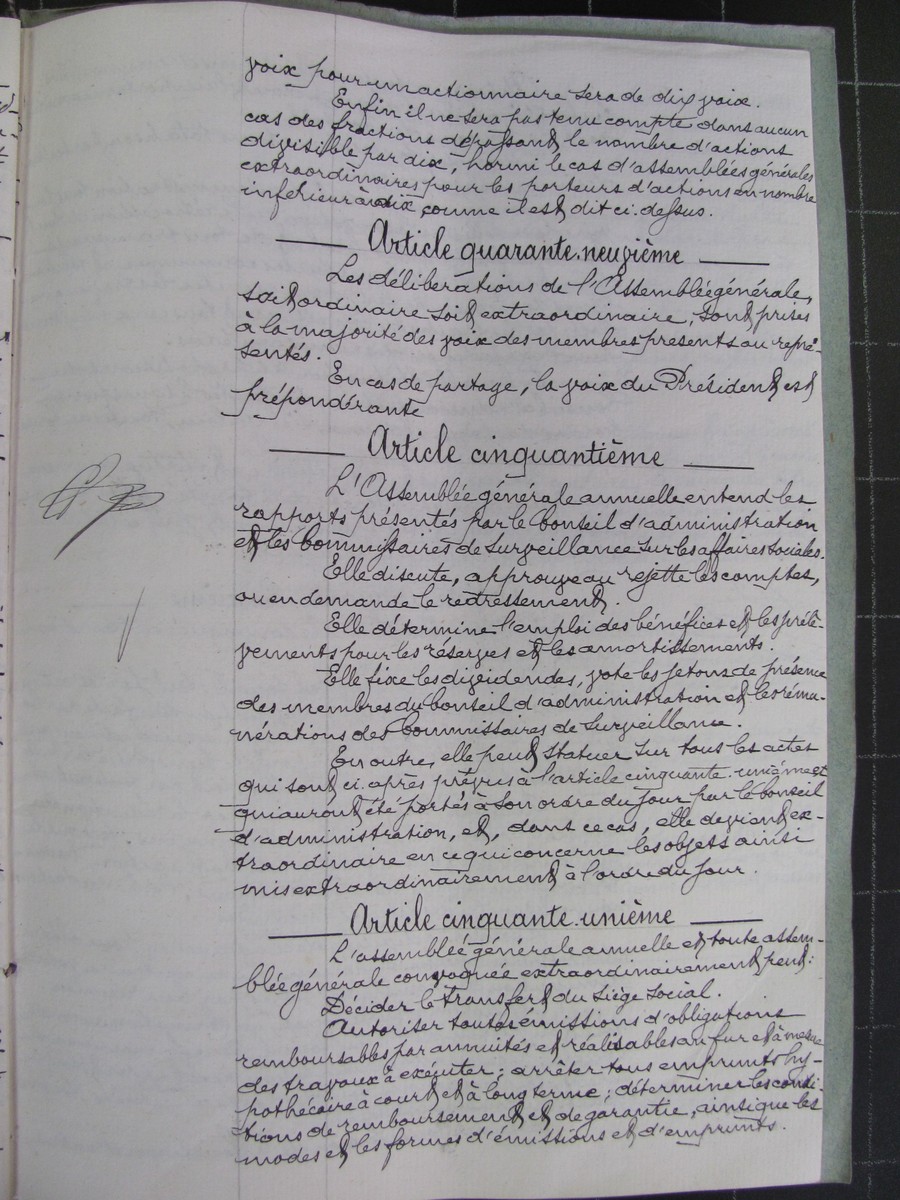 voix pour un actionnaire sera de dix voix.
Enfin il ne sera pas tenu compte dans aucun
cas des fractions dépassant le nombre d'actions
divisible par dix, hormi le cas d'assemblées générales
extraordinaires pour les porteurs d'actions en nombre
inférieur à dix comme il est dit ci-dessus.
Article quarante-neuvième
Les délibérations de l'Assemblée générale,
soit ordinaire soit extraordinaire, sont prises
à la majorité des voix des membres presents ou repré-
sentés.
En cas de partage, la voix du Président est
prépondérante
Article cinquantième
L'Assemblée générale annuelle entend les
rapports présentés par le Conseil d'administration
et les Commissaires de surveillance sur les affaires sociales.
Elle discute, approuve ou rejette les comptes,
ou en demande le redressement.
Elle détermine l'emploi des bénéfices et les prélè-
vements pour les réserves et les amortissements.
Elle fixe les dividendes, vote les jetons de présence
des membres du Conseil d'administration et les rému-
nérations des Commissaires de surveillance.
En outre, elle peut statuer sur tous les actes
qui sont ci-après prévus à l'article cinquante-unième et
qui auront été portés à son ordre du jour par le Conseil
d'administration, et, dans ce cas, elle devient ex-
traordinaire en ce qui concerne les objets ainsi
mis extraordinairement à l'ordre du jour.
Article cinquante-unième
L'assemblée générale annuelle et toute assem-
blée générale convoquée extraordinairement peut:
Décider le transfert du siège social.
Autoriser toutes émissions d'obligations
remboursables par annuités et réalisables au fur et à mesure
des travaux à exécuter; arrêter tous emprunts hy-
pothécaire à court et à long terme; déterminer les condi-
tions de remboursement et de garantie, ainsi que les
modes et les formes d'émissions et d'emprunts.